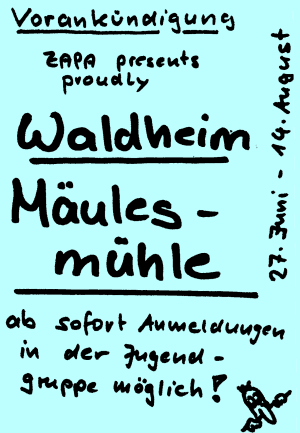 Vorankündigung
ZAPA presents
proudly
Waldheim
Mäules-
mühle
27. Juni - 14. August
ab sofort Anmeldungen
in der Jugend-
gruppe möglich!